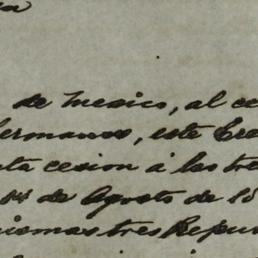 de Mexico, al ce
hermanos, este Cre
ta cesion á las tre
de Agosto de 18
mismas tres Repu